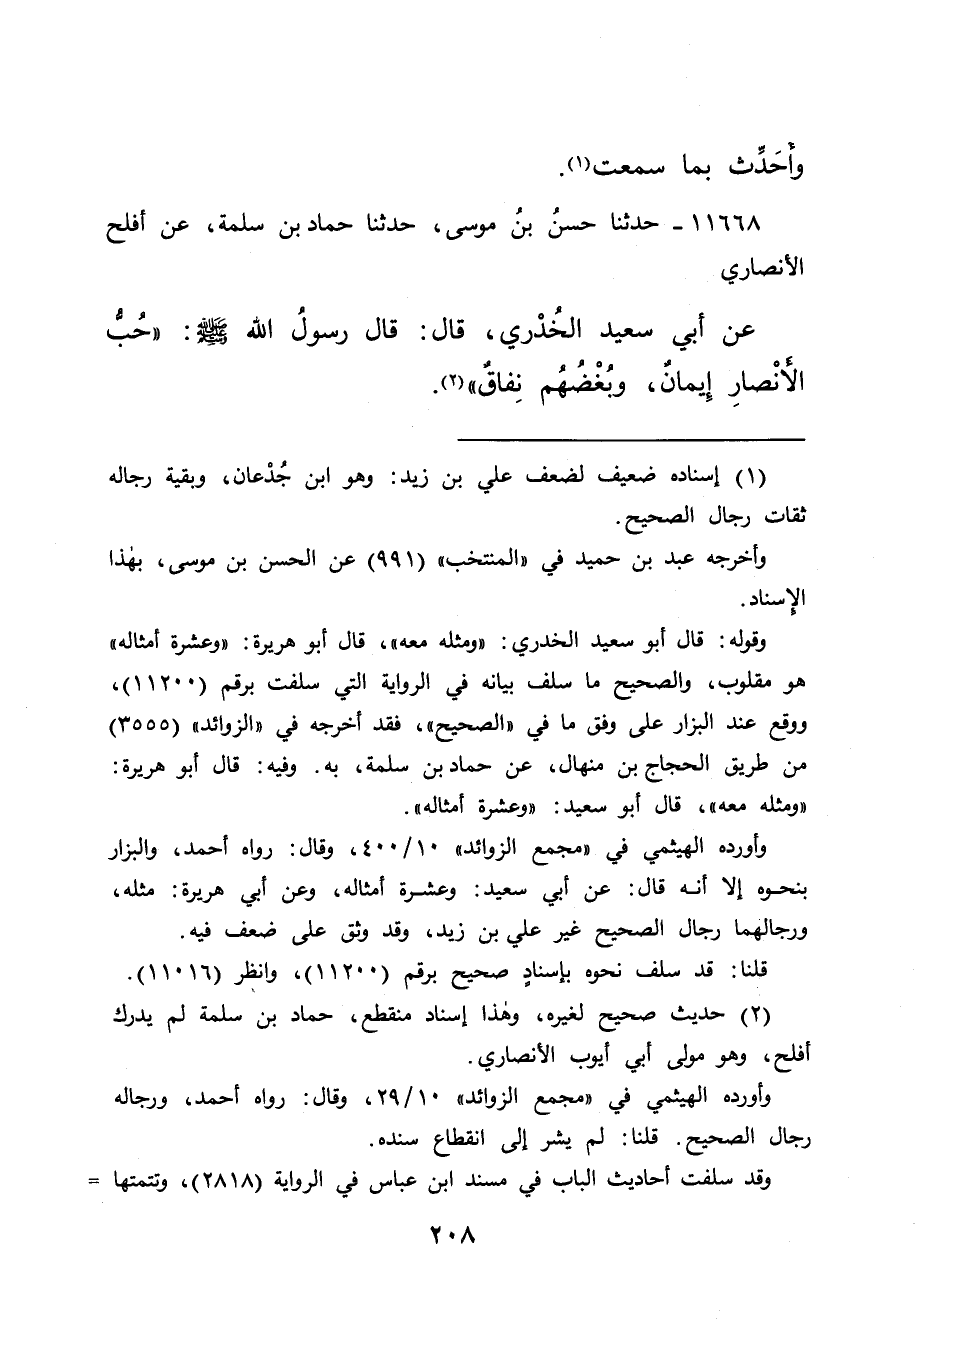 وأُحَدِّث بما سمعت(١).
١١٦٦٨ ـ حدثنا حسنُ بنُ موسى، حدثنا حماد بن سلمة، عن أفلح
الأنصاري
عن أبي سعيد الخُدْري، قال: قال رسولُ الله ﷺ: «حُبُّ
الأَنْصارِ إِيمانٌ، وبُغْضُهُم نِفاقٌ»(٢).
(١) إسناده ضعيف لضعف علي بن زيد: وهو ابن جُدْعان، وبقية رجاله
ثقات رجال الصحيح.
وأخرجه عبد بن حميد في «المنتخب» (٩٩١) عن الحسن بن موسى، بهٰذا
الإِسناد.
وقوله: قال أبو سعيد الخدري: «ومثله معه»، قال أبو هريرة: «وعشرة أمثاله»
هو مقلوب، والصحيح ما سلف بيانه في الرواية التي سلفت برقم (١١٢٠٠)،
ووقع عند البزار على وفق ما في «الصحيح»، فقد أخرجه في «الزوائد» (٣٥٥٥)
من طريق الحجاج بن منهال، عن حماد بن سلمة، به. وفيه: قال أبو هريرة:
«ومثله معه»، قال أبو سعيد: «وعشرة أمثاله».
وأورده الهيثمي في «مجمع الزوائد» ٤٠٠/١٠، وقال: رواه أحمد، والبزار
بنحوه إلا أنه قال: عن أبي سعيد: وعشرة أمثاله، وعن أبي هريرة: مثله،
ورجالهما رجال الصحيح غير علي بن زيد، وقد وثق على ضعف فيه.
قلنا: قد سلف نحوه بإسنادٍ صحيح برقم (١١٢٠٠)، وانظر (١١٠١٦).
(٢) حديث صحيح لغيره، وهٰذا إسناد منقطع، حماد بن سلمة لم يدرك
أفلح، وهو مولى أبي أيوب الأنصاري.
وأورده الهيثمي في «مجمع الزوائد» ٢٩/١٠، وقال: رواه أحمد، ورجاله
رجال الصحيح. قلنا: لم يشر إلى انقطاع سنده.
وقد سلفت أحاديث الباب في مسند ابن عباس في الرواية (٢٨١٨)، وتتمتها =
٢٠٨